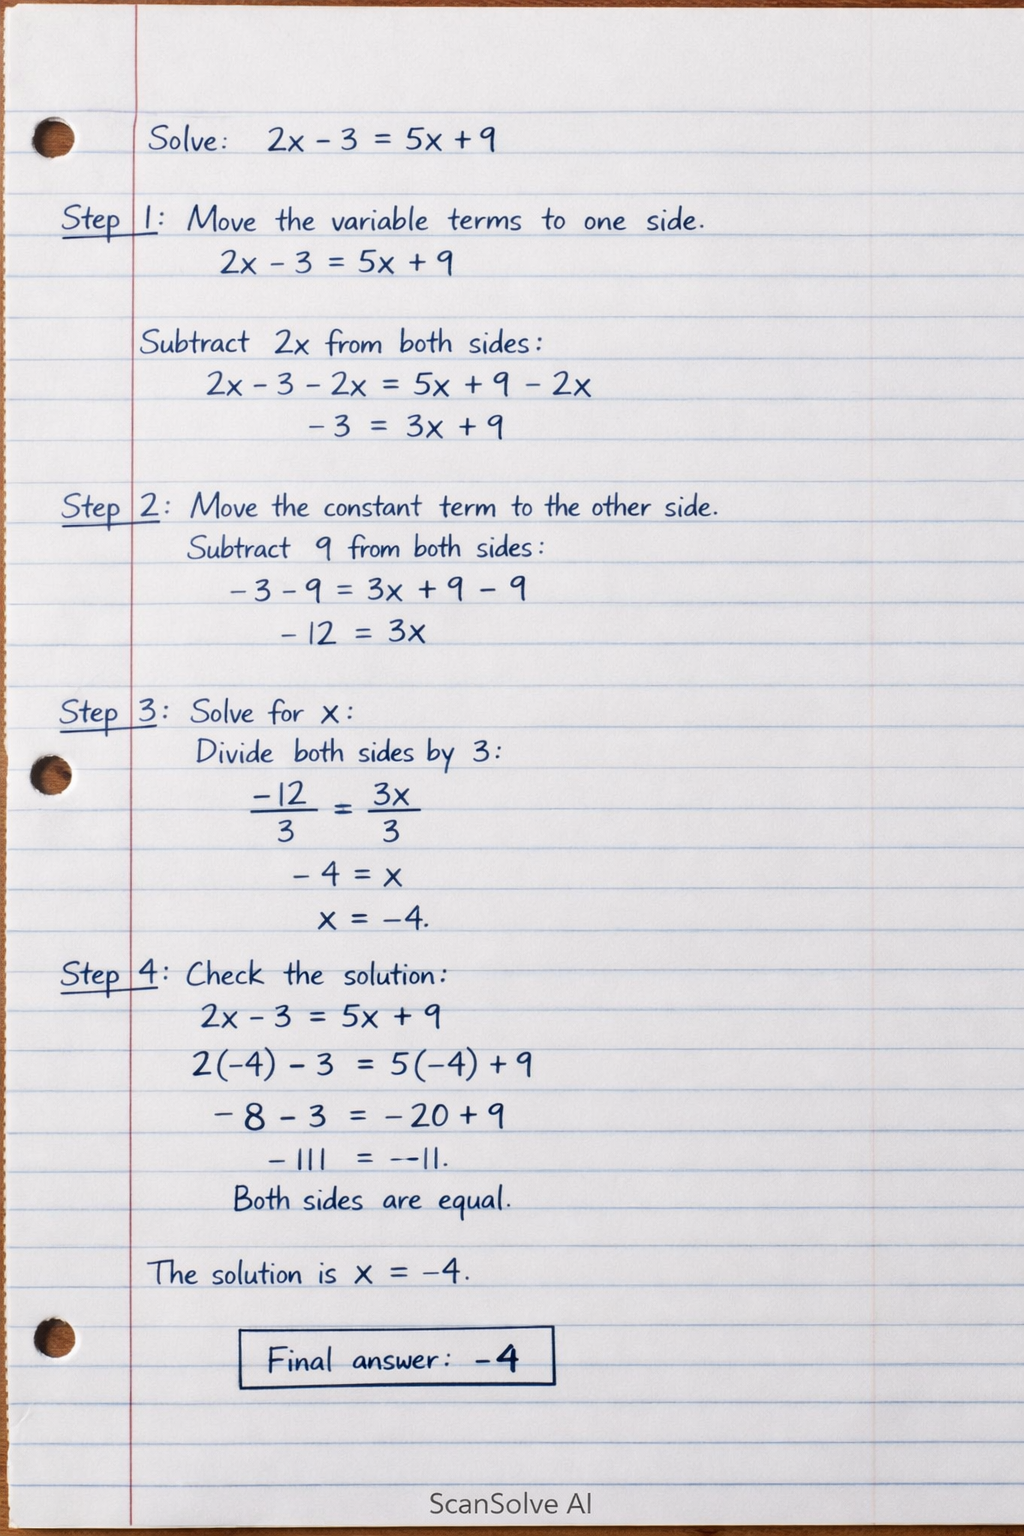 Solve: 2x - 3 = 5x + 9
Step 1: Move the variable terms to one side.
2x - 3 = 5x + 9
Subtract 2x from both sides:
2x - 3 - 2x = 5x + 9 - 2x
- 3 = 3x + 9
Step 2: Move the constant term to the other side.
Subtract 9 from both sides:
-3 - 9 = 3x + 9 - 9
- 12 = 3x
Step 3: Solve for x:
Divide both sides by 3:
-12/3 = 3x/3
- 4 = x
x = -4.
Step 4: Check the solution:
2x - 3 = 5x + 9
2(-4) - 3 = 5(-4) + 9
- 8 - 3 = - 20 + 9
- 111 = --11.
Both sides are equal.
The solution is x = -4.
Final answer: -4
ScanSolve AI